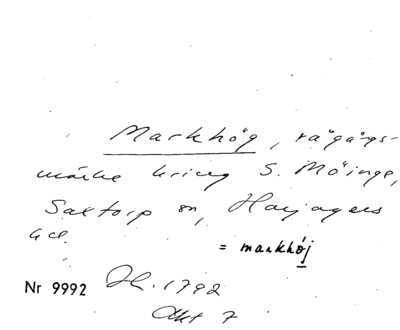 Markhög, rågångs-
märke kring S. Möinge,
Saxtorp sn, Harjagers
hd.
= markhöj
Nr 9992 H. 1792
Akt 7